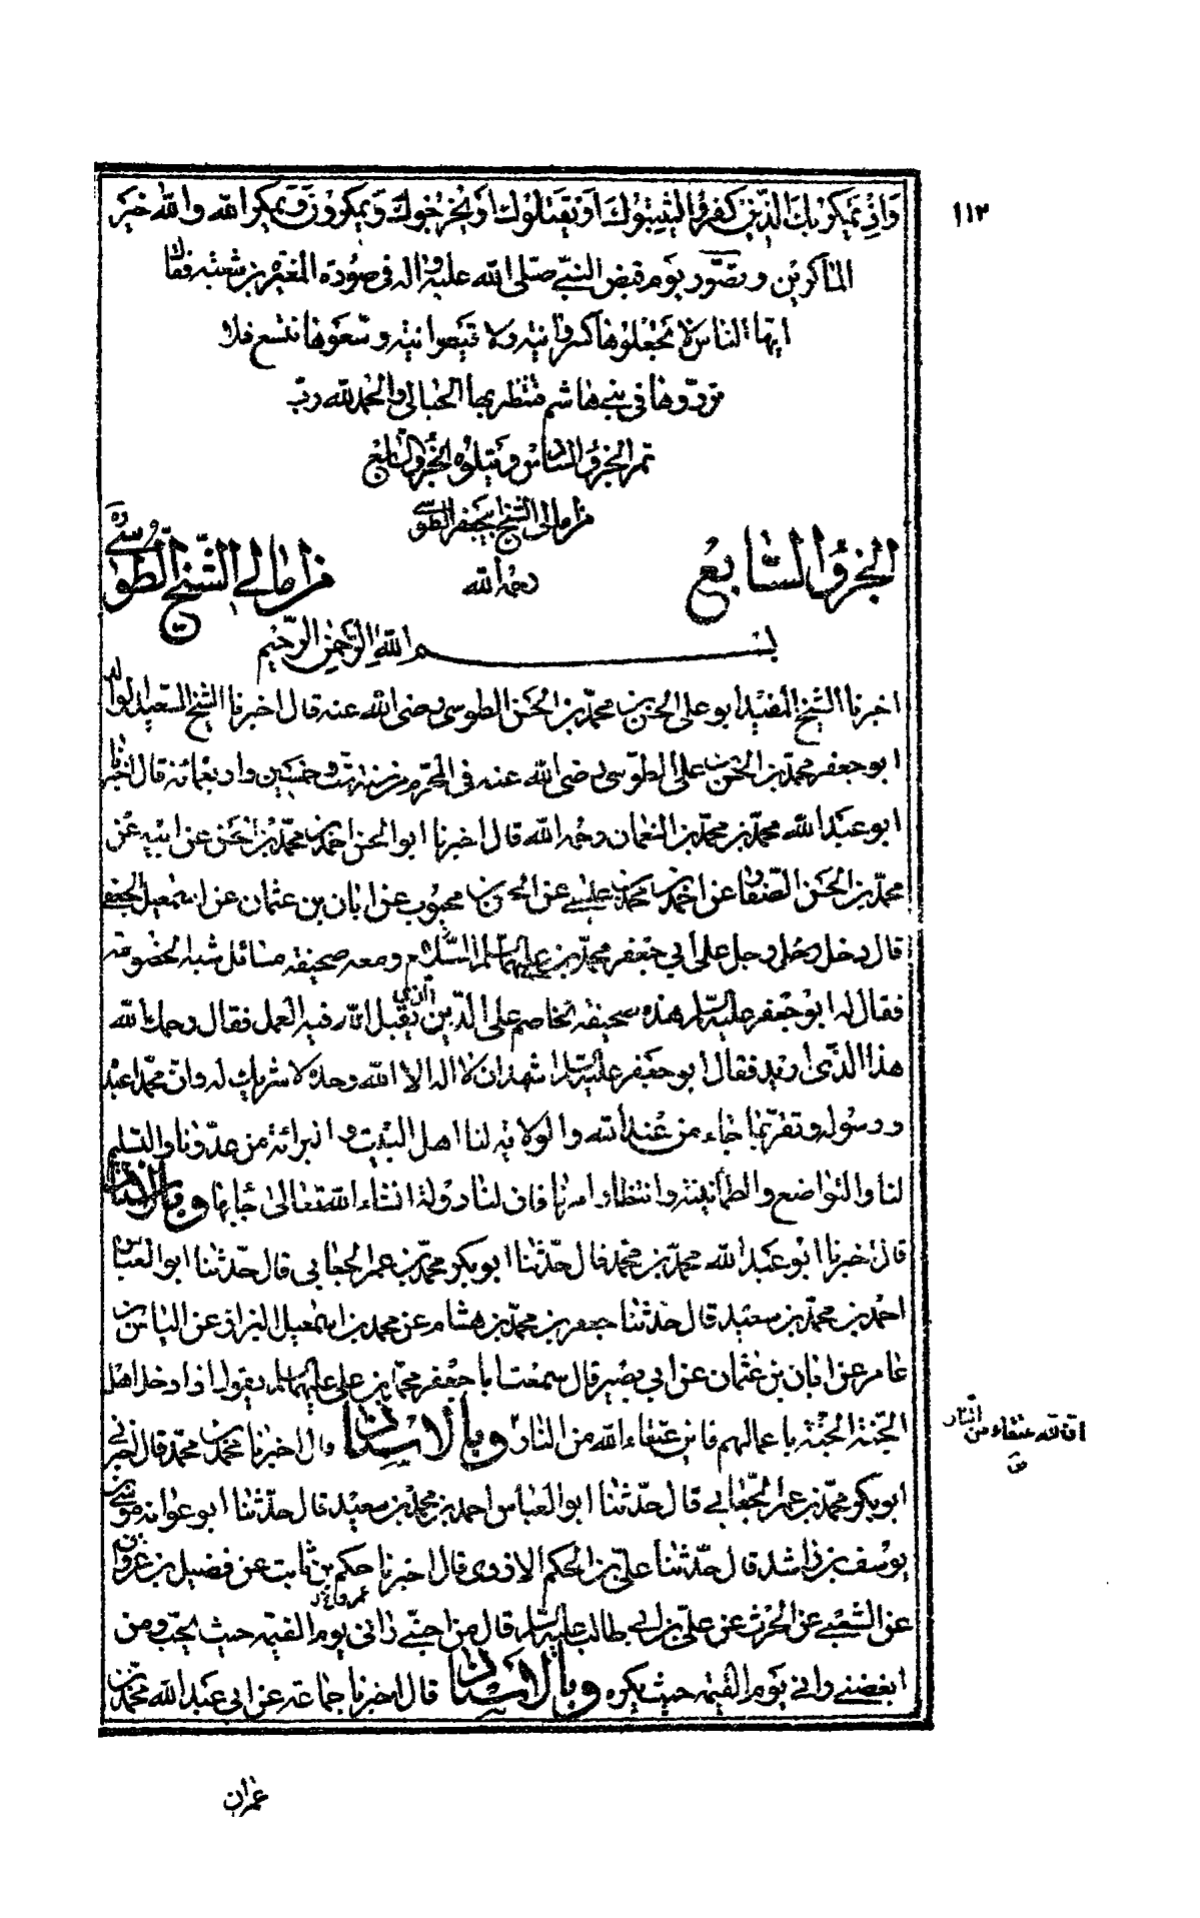 ١١٢
وَاِذْ يَمْكُرُ بِكَ الَّذينَ كَفَرُوا لِيُثْبِتُوكَ اَوْ يَقْتُلُوكَ اَوْ يُخْرِجُوكَ وَيَمْكُرُونَ وَيَمْكُرُ اللّٰه وَاللّٰه خَيْرُ
الماكرين وتصوّر يوم قبض النبىّ صلّى اللّه عليه واله فى صورة المغيرة بن شعبة فقال
ايّها الناس لا تجعلوها كسروانية ولا قيصرانية وسّعوها تتسع فلا
تردّوها فى بنى هاشم فتنظر بها الحبالى والحمد للّه ربّ
تمّ الجزؤ السادس ويتلوه الجزؤ السابع
من امالى الشيخ ابيجعفر الطوسى
رحمه اللّه
الجزؤ السّابع من امالى الشّيخ الطّوسىّ ره
بسم اللّه الرّحمن الرّحيم
اخبرنا الشيخ المفيد ابو على الحسن بن محمّد بن الحسن الطوسى رضى اللّه عنه قال اخبرنا الشيخ السّعيد الوالد
ابو جعفر محمّد بن الحسن بن على الطوّسى رضى اللّه عنه فى المحرّم من سنة ستّ وخمسين واربعمائة قال اخبرنا
ابو عبد اللّه محمّد بن محمّد بن النعمان رحمه اللّه قال اخبرنا ابو الحسن احمد بن محمّد بن الحسن عن ابيه عن
محمّد بن الحسن الصّفار عن احمد بن محمد بن عيسى عن الحسن بن محبوب عن ابان بن عثمان عن اسمعيل الجعفى
قال دخل رجل على ابي جعفر محمّد بن على عليهما السّلام ومعه صحيفة مسائل شبه الخصومة
فقال له ابو جعفر عليه السّلم هذه صحيفة تخاصم على الدّين الذى يقبل اللّه فيه العمل فقال رحمك اللّه
هذا الّذى اريد فقال ابو جعفر عليه السّلم اشهد ان لا اله الا اللّه وحده لا شريك له وانّ محمّدا عبده
ورسوله وتقرّ بما جاء من عند اللّه والولاية لنا اهل البيت والبرائة من عدوّنا والتسليم
لنا والتواضع والطمأنينة وانتظار امرنا فان لنا دولة انشاء اللّه تعالى جاء بها وبالاسناد
قال اخبرنا ابو عبد اللّه محمّد بن محمّد قال حدّثنا ابو بكر محمّد بن عمر الجعابى قال حدّثنا ابو العباس
احمد بن محمّد بن سعيد قال حدّثنا جعفر بن محمّد بن هشام عن محمد بن اسمعيل البزاز عن الياس بن
عامر عن ابان بن عثمان عن ابي بصير قال سمعت ابا جعفر محمّد بن على عليهما السلم يقول اذا دخل اهل
الجنّة الجنّة باعمالهم فاين عتقاء اللّه من النار وبالاسناد قال اخبرنا محمد بن محمّد قال اخبرنى
انّ للّه عتقاء من النّار
ابو بكر محمّد بن عمر الجعابى قال حدّثنا ابو العباس احمد بن محمّد بن سعيد قال حدّثنا ابو عوانة موسى بن
يوسف بن راشد قال حدّثنا علىّ بن الحكم الاودى قال اخبرنا حكم بن ثابت عن فضيل بن غزوان
عن الشعبى عن الحرث عن علىّ بن ابي طالب عليه السّلم قال من احبّنى رانى يوم القيمة حيث يحبّ ومن
ابغضنى رانى يوم القيمة حيث يكره وبالاسناد قال اخبرنا جماعة عن ابى عبد اللّه محمّد بن
عمران